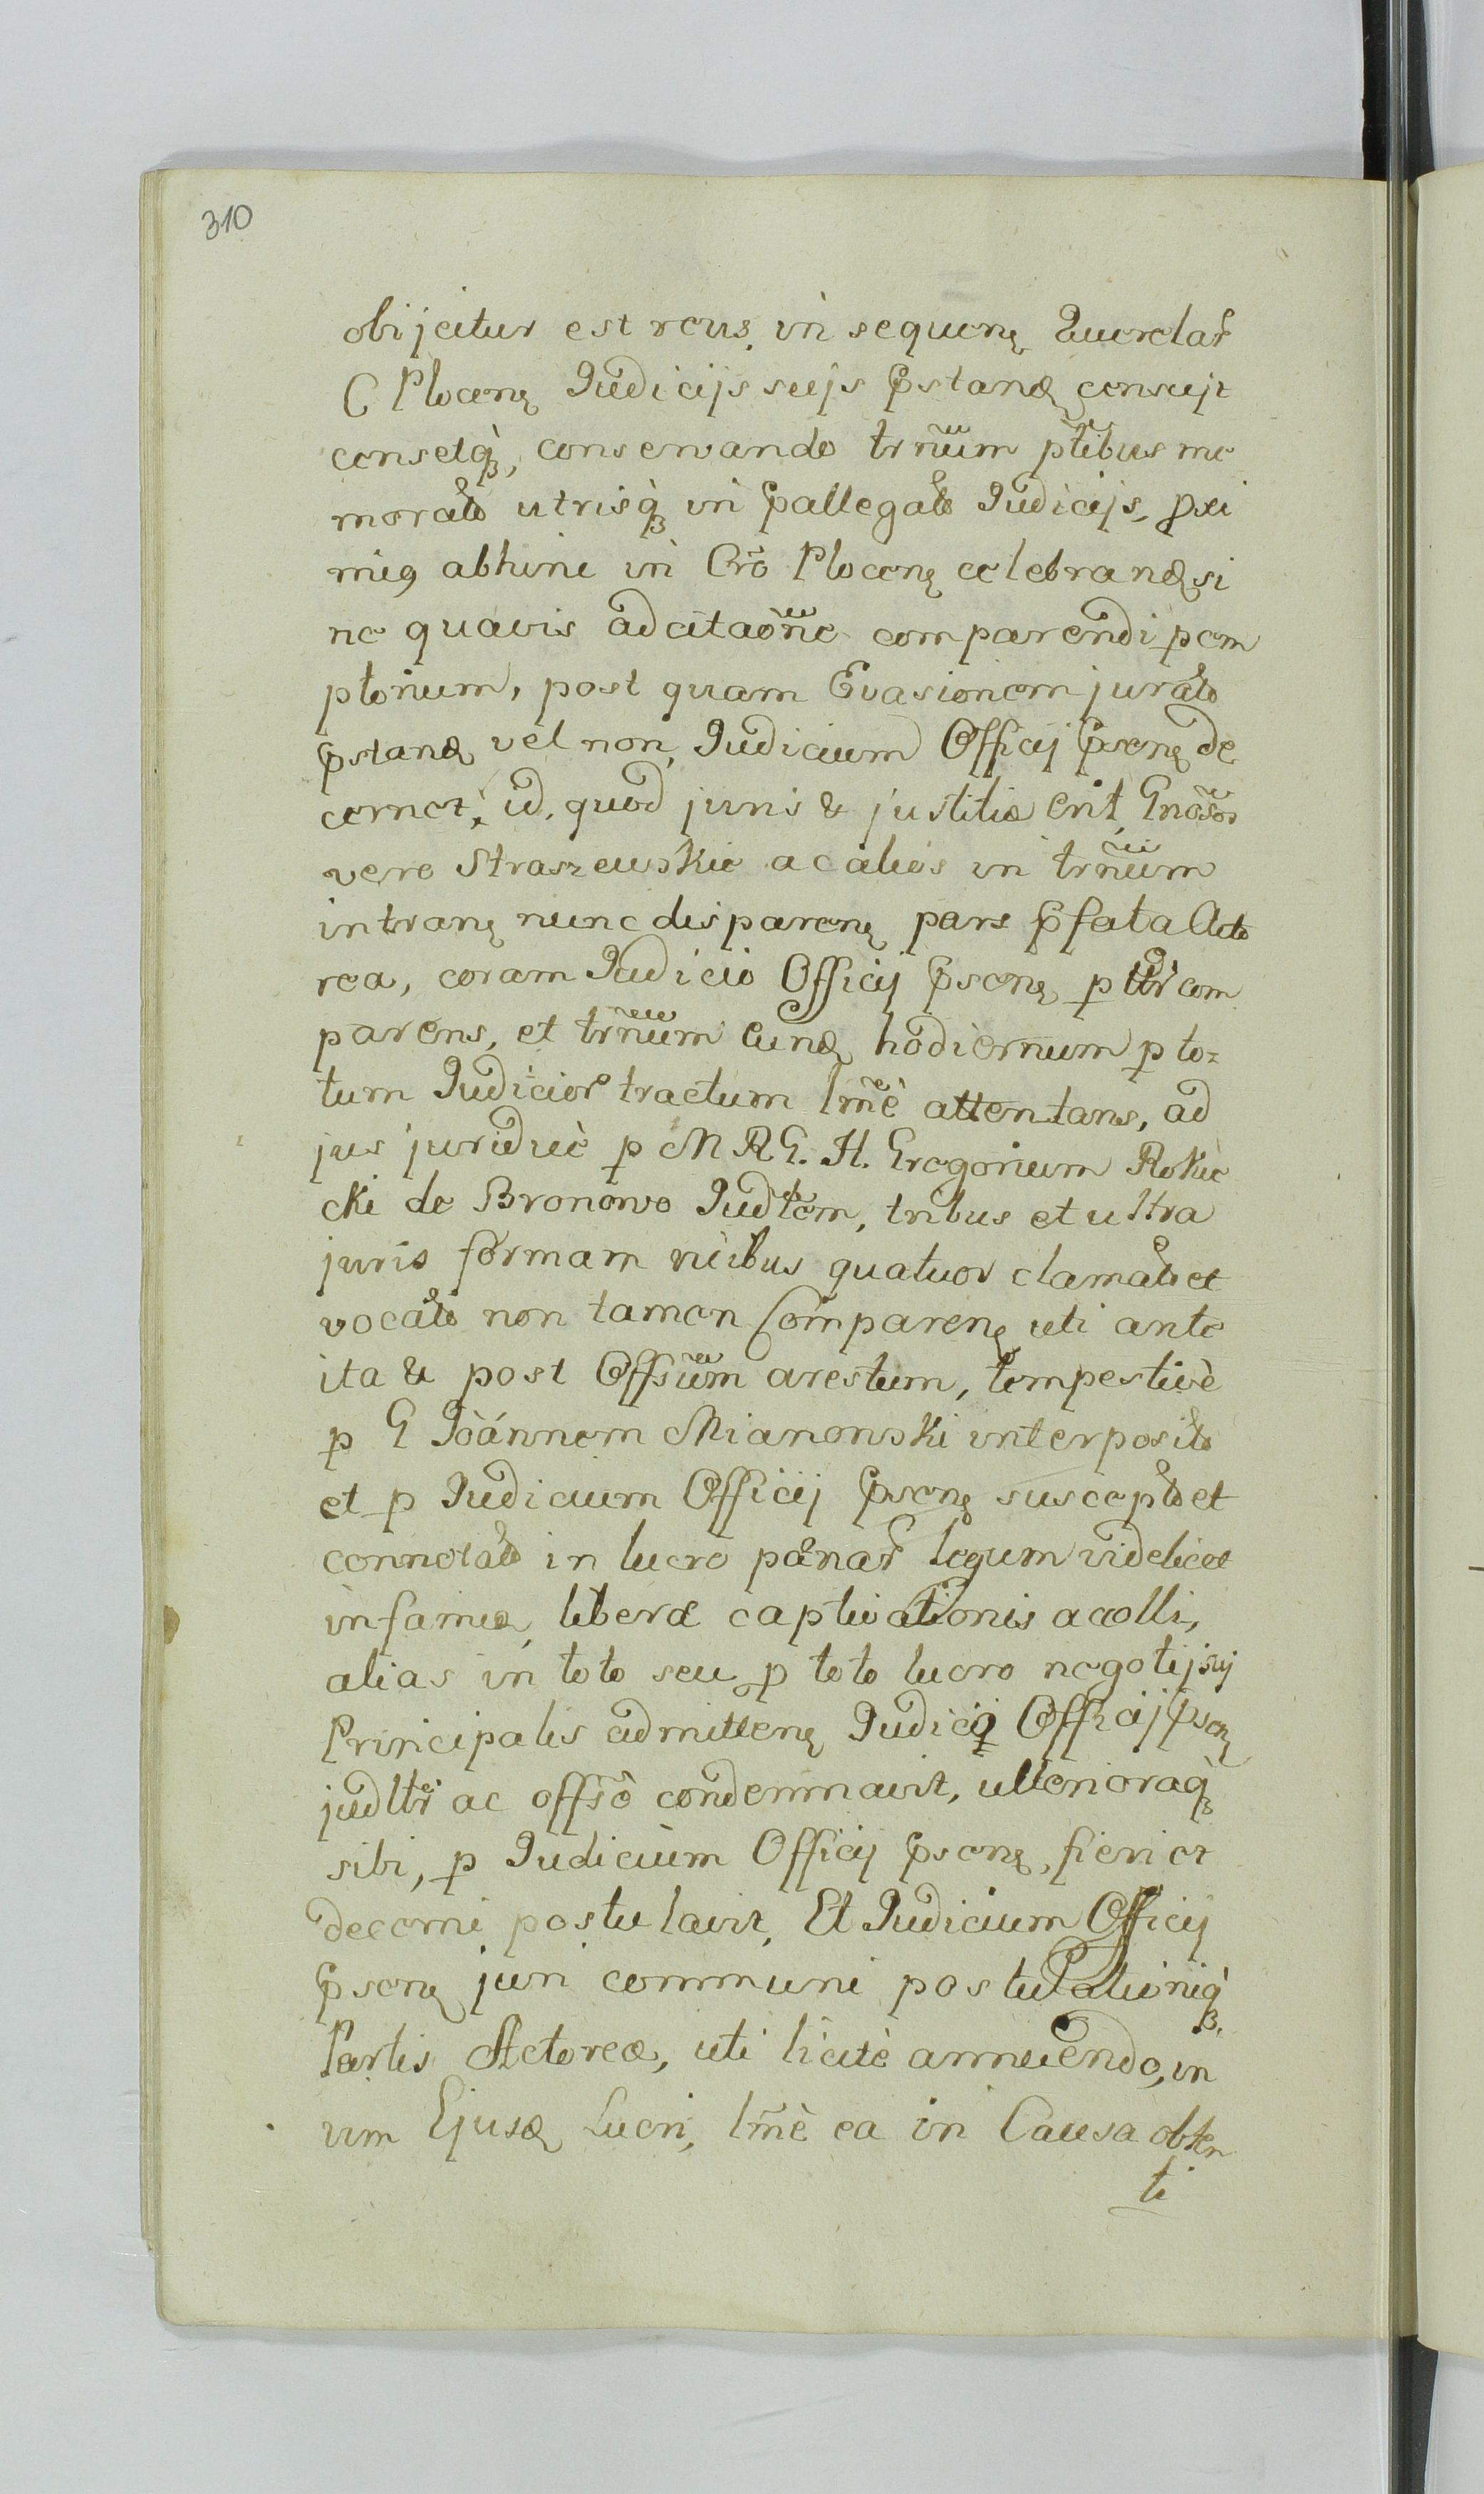 310
obijcitur est reus, in sequenꝫ Querelaꝝ
C Plocenꝫ Judicijs seijs p̄standꝫ censujt
censetqꝫ, conservando trñum ptibus me
morato utrisqꝫ in p̄allegato Judicijs, proxi
mis abhinc in Crô Plocenꝫ celebrandꝫ si
ne quavis adcitãone comparendi pem
ptorium, post quam Evasionem jurato
p̄standꝫ vel non, Judicium Officij p̄senꝫ de
cernet, id, quod juris & justitiæ erit, Gnosos
vero Straszewskie ac alios in trñum
intranꝫ nunc disparenꝫ pars p̄fata Acto
rea, coram Judicio Officij p̄senꝫ pltr com
parens, et trñum eundꝫ hodiernum p to=
tum Judicioꝝ tractum lmẽ attentans, ad
jus juridicè p M R G. H. Gregorium Rokic
cki de Bronowo Judtem, tribus et ultra
juris formam vicibus quatuor clamato et
vocato non tamen Comparenꝫ uti ante
ita & post Offsũm arestum, tempestivè
p G Joánnem Mianowski interposito
et p Judicium Officij p̄senꝫ suscepto et
connotato in lucro pænaꝝ legum videlicet
infamiæ, liberæ captivationis ac colli,
alias in toto seu p toto lucro negotij sui
Principalis admittenꝫ Judicij Officij p̄senꝫ
judltr ac offsõ condemnavit, ulterioraqꝫ
sibi, p Judicium Officij p̄senꝫ, fieri et
decerni postulavit, Et Judicium Officij
p̄senꝫ juri communi postulationiqꝫ
Partis Actoreæ, uti licitè annuendo, in
vim Ejusdꝫ Lucri, lmẽ ea in Causa obten
ti